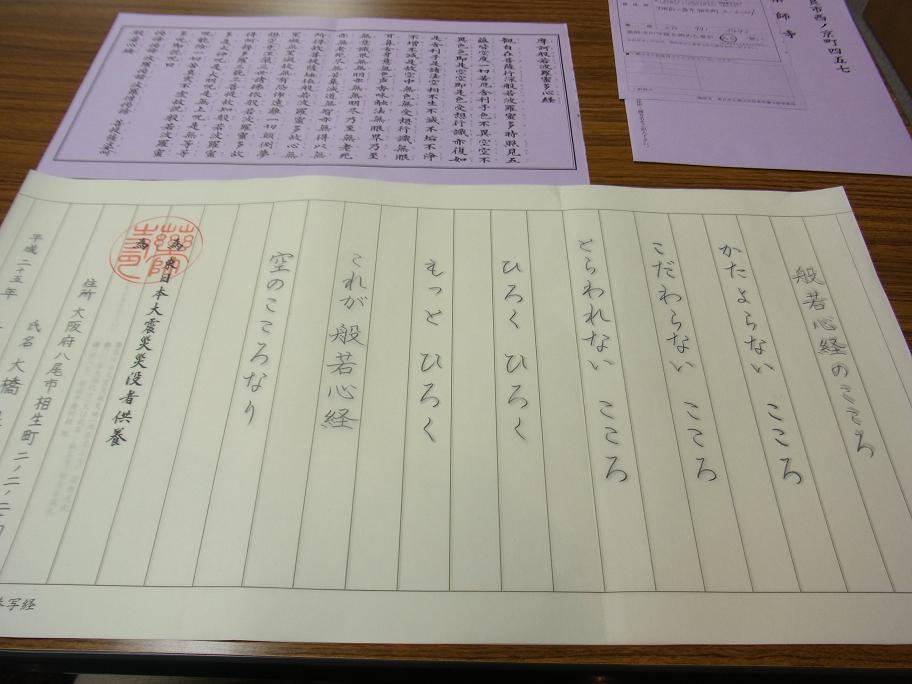 般若心経のこころ
かたよらない こころ
こだわらない こころ
とらわれない こころ
ひろく ひろく
もっと ひろく
これが 般若心経
空のこころなり
為 東日本大震災災没者供養
住所 大阪府八尾市相生町
氏名 大橋
平成二十五年
写経
摩訶般若波羅蜜多心経
観自在菩薩行深般若波羅蜜多時照見五
蘊皆空度一切苦厄舎利子色不異空空不
異色色即是空空即是色受想行識亦復如
是舎利子是諸法空相不生不滅不垢不浄
不増不減是故空中無色無受想行識無眼
耳鼻舌身意無色声香味触法無眼界乃至
無意識界無無明亦無無明尽乃至無老死
亦無老死尽無苦集滅道無智亦無得以無
所得故菩提薩埵依般若波羅蜜多故心無
罣礙無罣礙故無有恐怖遠離一切顛倒夢
想究竟涅槃三世諸佛依般若波羅蜜多故
得阿耨多羅三藐三菩提故知般若波羅蜜
多是大神呪是大明呪是無上呪是無等等
呪能除一切苦真実不虚故説般若波羅蜜
多呪即説呪曰
羯諦羯諦波羅羯諦波羅僧羯諦 菩提薩婆訶
般若心経
市西ノ京町四五七
師寺